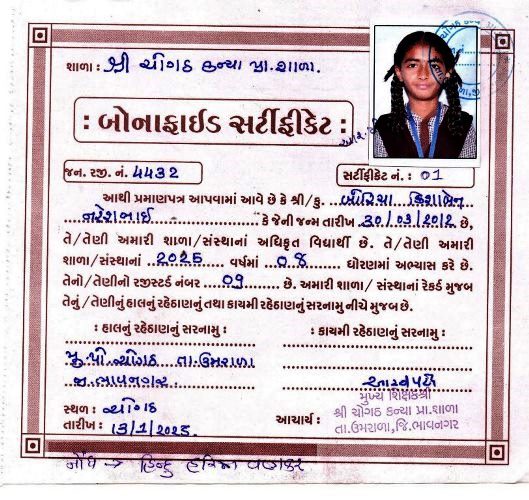 શાળા : શ્રી ચોગઠ કન્યા પ્રા. શાળા.
: બોનાફાઈડ સર્ટીફીકેટ :
જન. રજી. નં. 4432
સર્ટીફીકેટ નં. : 01
આથી પ્રમાણપત્ર આપવામાં આવે છે કે શ્રી/કુ. બોરિચા
નરેશભાઈ કે જેની જન્મ તારીખ 30/03/2012 છે,
તે/તેણી અમારી શાળા/સંસ્થાનાં અધિકૃત વિદ્યાર્થી છે. તે/તેણી અમારી
શાળા/સંસ્થાનાં 2025 વર્ષમાં 08 ધોરણમાં અભ્યાસ કરે છે.
તેનો/તેણીનો રજીસ્ટર્ડ નંબર 09 છે. અમારી શાળા/ સંસ્થાનાં રેકર્ડ મુજબ
તેનું / તેણીનું હાલનું રહેઠાણનું તથા કાયમી રહેઠાણનું સરનામુ નીચે મુજબ છે.
: હાલનું રહેઠાણનું સરનામુ :
: કાયમી રહેઠાણનું સરનામુ :
મુ. પો ચોગઠ તા. ઉમરાળા
જી. ભાવનગર.
સ્થળ : ચોગઠ
તારીખ : 13/1/2025
આચાર્ય :
મુખ્ય શિક્ષકશ્રી
શ્રી ચોગઠ કન્યા પ્રા.શાળા
તા.ઉમરાળા, જિ.ભાવનગર
નોંધ → હિન્દુ વણકર